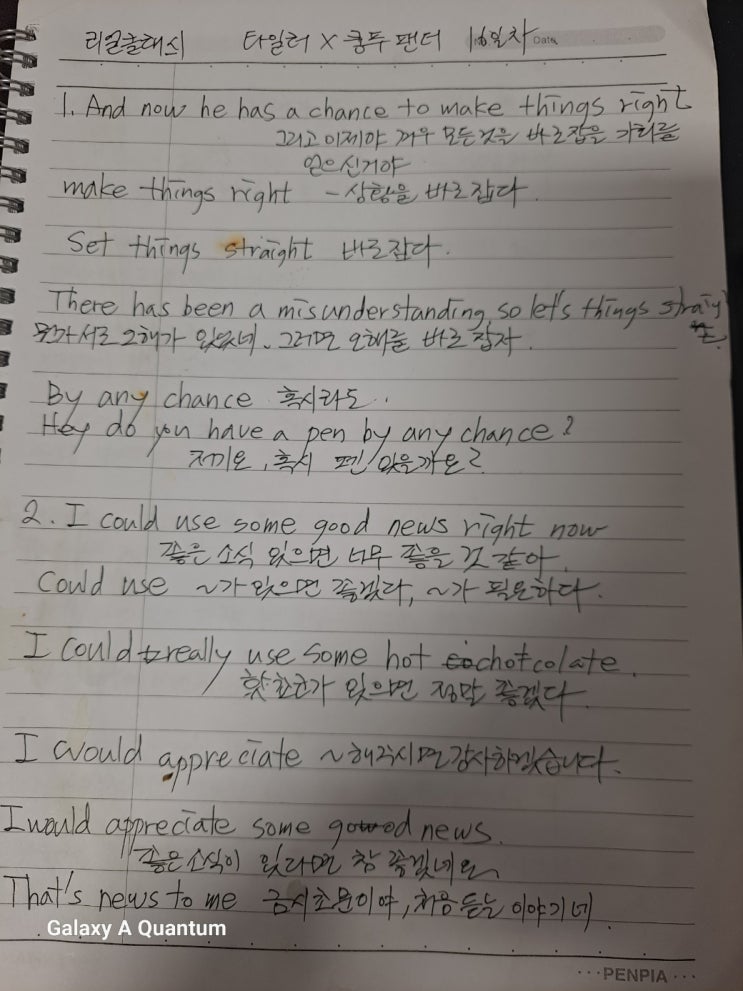 리얼클래식 타일러 X 쿵푸팬더 16일차 Date.
1. And now he has a chance to make things right
그리고 이제야 겨우 모든것을 바로잡을 기회를
얻으신거야
make things right - 상황을 바로잡다.
Set things straight 바로잡다.
There has been a misunderstanding, so let's things straight
뭔가 서로 오해가 있었네. 그러면 오해를 바로 잡자.
By any chance 혹시라도..
Hey do you have a pen by any chance?
저기요, 혹시 펜 있을까요?
2. I could use some good news right now
좋은 소식 있으면 너무 좋을 것 같아.
Could use ~가 있으면 좋겠다, ~가 필요하다.
I could really use some hot chotcolate.
핫초코가 있으면 정말 좋겠다.
I would appreciate ~해주시면 감사하겠습니다.
I would appreciate some good news.
좋은 소식이 있다면 참 좋겠네요
That's news to me 금시초문이야, 처음 듣는 이야기네
Galaxy A Quantum
···PENPIA···